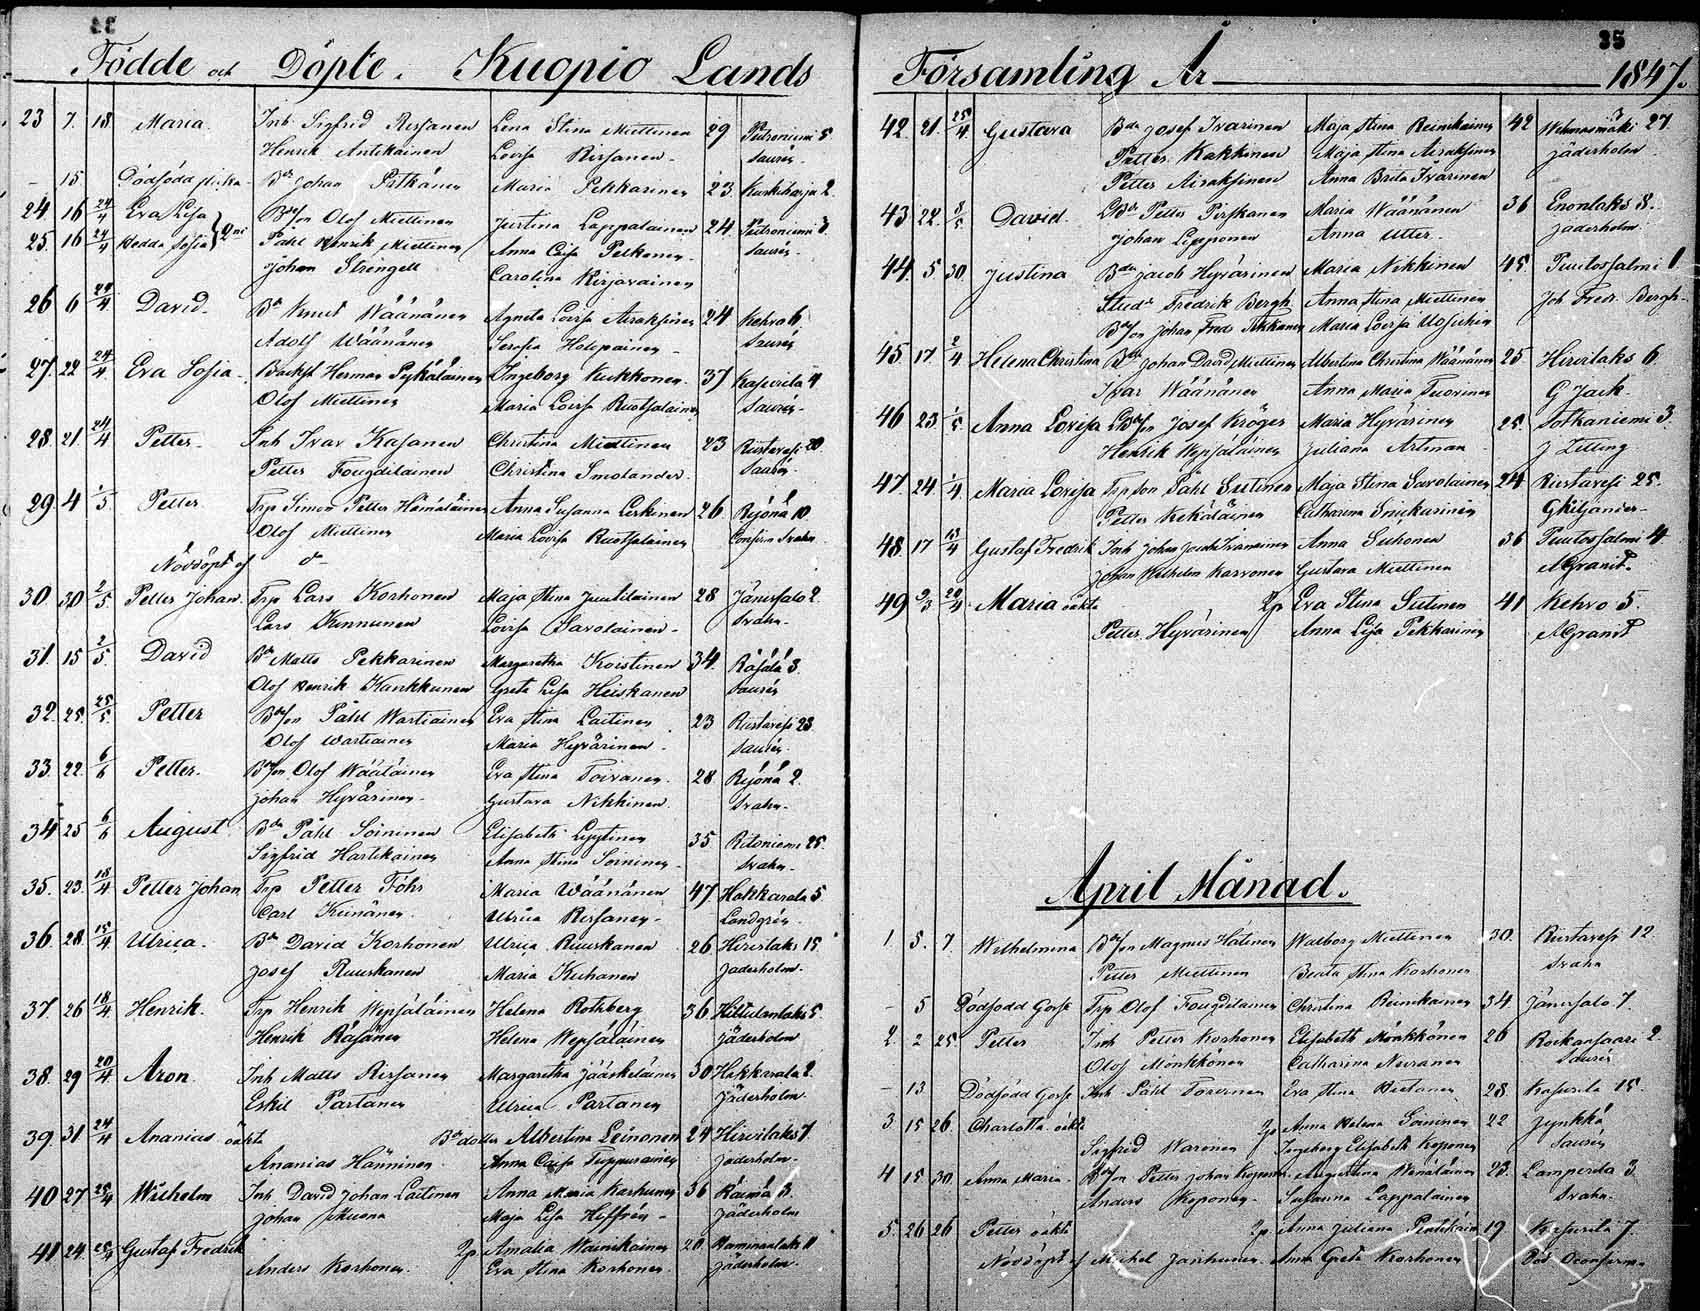 35
Födde och Döpte. Kuopio Lands
Församling År 1847.
23 7. 18 Maria. Inh Sigfrid Rissanen Lena Stina Miettinen 29 Putroniemi 5
Henrik Antikainen Lovisa Rissanen Saurén
15 Dödfödd flicka Johan Maria Pekkarinen 23 Kurkiharju 2
24 16 24/4 Eva Lisa Olof Miettinen Justina Lappalainen 24 Putroniemi 3
25 16 24/4 Hedda Sofia Påhl Henrik Miettinen Anna Caisa Pelkonen Saurén
Johan Strengell Carolina Kirjavainen
26 6 24/4 David Knut Wäänänen Agneta Lovisa Airaksinen 24 Kehvo 6
Adolf Wäänänen Serafia Holopainen Saurén
27. 22 24/4 Eva Sofia Herman Pyykäläinen Ingeborg Kukkonen 37 Kasurila 4
Olof Miettinen Maria Lovisa Ruotsalainen Saurén
28. 21 24/4 Petter Inh Ivar Kasanen Christina Miettinen 23 Riistavesi 20
Petter Fougdilainen Christina Smolander Saurén
29 4 1/5 Petter Trp Simon Petter Hämäläinen Anna Susanna Leskinen 26 Réjönä 10
Olof Miettinen Maria Lovisa Ruotsalainen Svahn
Nöddöpt af
30 30 2/5 Petter Johan Trp Lars Korhonen Maja Stina Juutilainen 28 Jänissalo 2
Lars Kinnunen Lovisa Savolainen Svahn
31. 15 2/5 David Matts Pekkarinen Margaretha Koistinen 34 Räsälä 3
Olof Henrik Kankkunen Greta Lisa Heiskanen Saurén
32. 25. 25/5 Petter Påhl Wartiainen Eva Stina Laitinen 23 Riistavesi 23
Olof Wartiainen Maria Hyvärinen Saurén
33. 22. 6/6 Petter. Olof Väätäinen Eva Stina Toivanen 28 Réjönä 2
Johan Hyvärinen Gustava Nikkinen Svahn
34 25 6/6 August Påhl Soininen Elisabeth Lyytinen 35 Ritoniemi 25
Sigfrid Hartikainen Anna Stina Soininen Svahn
35. 23. 18/4 Petter Johan Trp Petter Föhr Maria Wäänänen 47 Hakkarala 5
Carl Keinänen Ulrica Rissanen Landgrén
36. 28. 15/4 Ulrica. David Korhonen Ulrica Ruuskanen 26 Hirvilaks 15
Josef Ruuskanen Maria Kuhanen Jäderholm
37. 26 18/4 Henrik. Trp Henrik Wepsäläinen Helena Rothberg 36 Hiltulanlaks 5
Henrik Räsänen Helena Wepsäläinen Jäderholm
38. 29 20/4 Aron Inh Matts Rissanen Margaretha Jääskeläinen 30 Hakkarala 2
Eskil Partanen Ulrica Partanen Jäderholm
39. 31 24/4 Ananias oäkta Albertina Leinonen 24 Hirvilaks 1
Ananias Hänninen Anna Caisa Tuppurainen Jäderholm
40 27 25/4 Wilhelm Inh David Johan Laitinen Anna Maria Karhunen 36 Räimä 3
Johan Skuona Maja Lisa Hoffrén Jäderholm
41 24. 25/4 Gustaf Fredrik Amalia Wainikainen 20 Kaminanlaks 11
Anders Korhonen Eva Stina Korhonen Jäderholm
42. 21. 25/4 Gustava Josef Ivarinen Maja Stina Reinikainen 42 Wehmasmäki 27
Petter Kakkinen Maja Stina Airaksinen Jäderholm
Petter Airaksinen Anna Brita Ivarinen
43 22. 8/5 David. Petter Pirskanen Maria Wäänänen 36 Enonlaks 8
Johan Lipponen Anna Utter Jäderholm
44. 5 30. Justina Jacob Hyvärinen Maria Nikkinen 45 Puutossalmi 1
Fredrik Bergh Anna Stina Miettinen Joh Fredr. Bergh
Johan Fred Tikkanen Maria Lovisa
45 17. 2/4 Helena Christina Johan David Miettinen Albertina Christina Wäänänen 25 Hirvilaks 6
Ivar Wäänänen Anna Maria Tuovinen G Jack
46 23. 1/5 Anna Lovisa Josef Kröger Maria Hyvärinen 25 Sotkaniemi 3
Henrik Wepsäläinen Juliana Artman J Zitting
47. 24. 1/4 Maria Lovisa Trp son Påhl Sutinen Maja Stina Savolainen 24 Riistavesi 25
Petter Kekäläinen Catharina Snickarinen G Kiljander
48. 17 13/4 Gustaf Fredrik Inh Johan Jacob Ivananinen Anna Suhonen 36 Puutossalmi 4
Johan Wilhelm Karvonen Gustava Miettinen A Granit
49 9/3 20/4 Maria oäkta Eva Stina Sutinen 41 Kehvo 5
Petter Hyvärinen Anna Lisa Pekkarinen A Granit
April Månad.
1. 5. 7. Wilhelmina Magnus Hätinen Walborg Miettinen 30 Riistavesi 12
Petter Miettinen Beata Stina Korhonen Svahn
5 Dödfödd Gosse Trp Olof Fougdilainen Christina Reinikainen 34 Jänissalo 7
2. 2 25 Petter Inh Petter Korhonen Elisabeth Mönkkönen 26 2
Olof Mönkkönen Catharina Nevanen Saurén
13 Dödfödd Gosse Inh Påhl Toivinen Eva Stina 28 Kasurila 15
3 15 26. Charlotta oäkta Anna Helena Soininen 22 Jynkkä
Sigfrid Waronen Ingeborg Elisabeth Koponen Saurén
4 15. 30. Anna Maria Petter Johan Koponen Augustina Wenäläinen 23 Lamperila 3
Anders Koponen Susanna Lappalainen Svahn
5. 26 26 Petter oäkta Anna Juliana 19 Kasurila 7
Nöddöpt af Michel Jauhiainen Anna Greta Korhonen